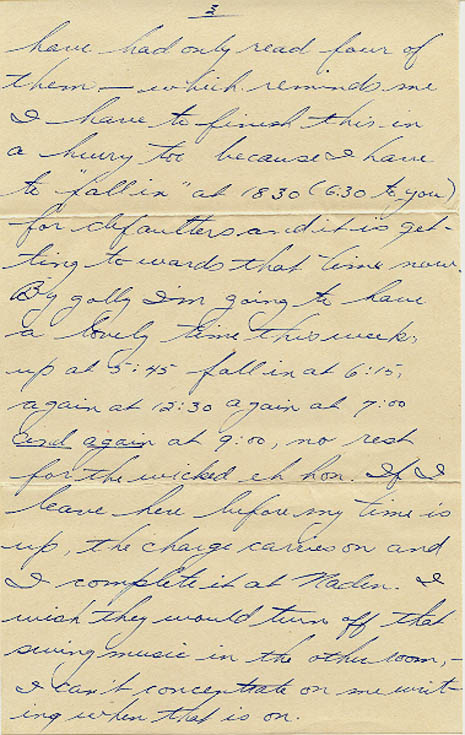 3
have had only read four of
them — which reminds me
I have to finish this in
a hurry too because I have
to "fall in" at 1830 (6:30 to you)
for defaulters and it is get-
ting towards that time now.
By golly I'm going to have
a lovely time this week,
up at 5:45 fall in at 6:15,
again at 12:30 again at 7:00
and again at 9:00, no rest
for the wicked eh hon. If I
leave here before my time is
up, the charge carries on and
I complete it at Naden. I
wish they would turn off that
swing music in the other room, -
I can't concentrate on me writ-
ing when that is on.